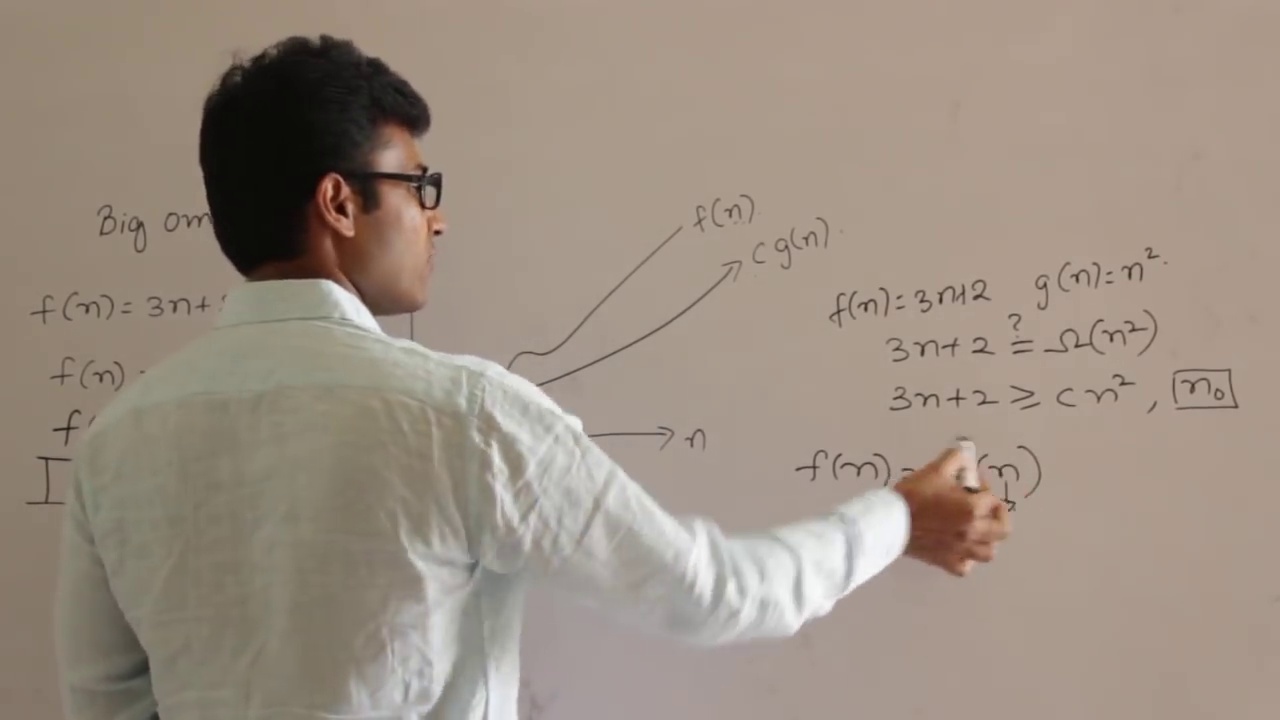 Big
f(n) = 3n+
f(n)
I
f(n)
c g(n)
n
f(n) = 3n+2 g(n) = n².
3n+2 ≟ Ω(n²)
3n+2 ≥ cn², n₀
f(n) = (n)